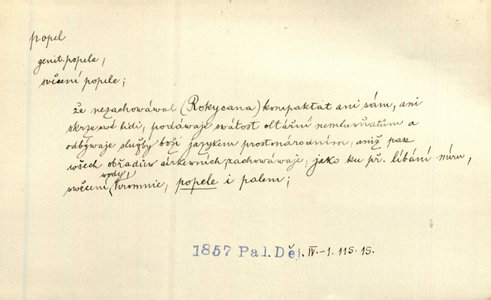 popel
genit. popele;
svěcení popele;
že nezachowáwal (Rokycana) kompaktat ani sám, ani
skrze swé lidi, podáwaje swátost oltářní nemluwňatům a
odbýwaje služby boží jazykem prostonárodním, aniž pak
wšech obřadůw církewních zachowáwaje, jako ku př. líbání míru,
swěcení wody, hromnic, popele i palem;
1857 Pal. Děj. IV-1. 115. 15.